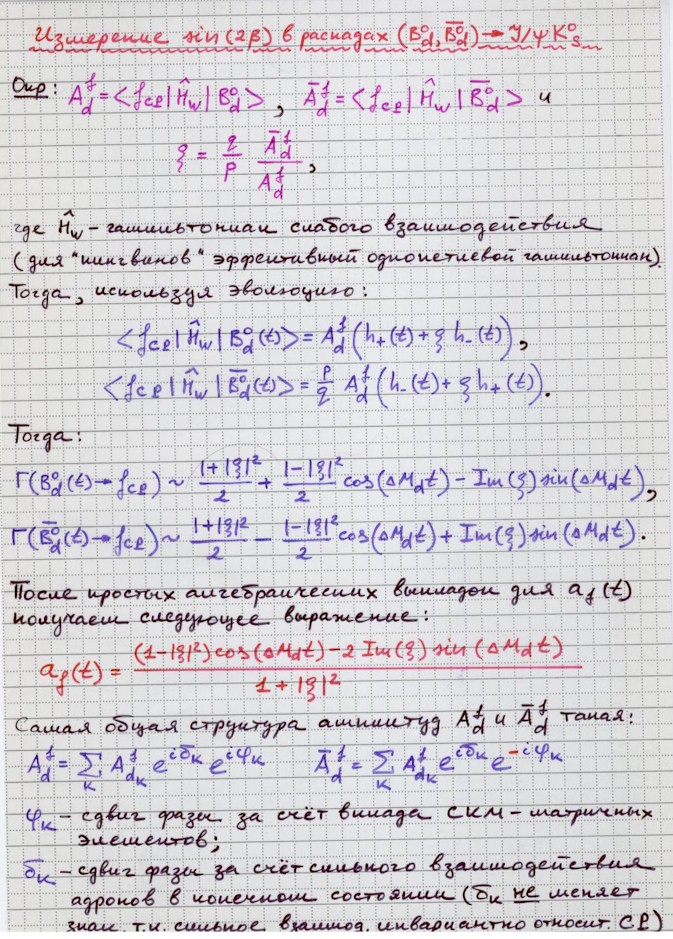 Измерение sin(2β) в распадах (B⁰_d, B̄⁰_d) → J/ψ K⁰_S
Опр: A^f_d = <f_CP| Ĥ_w | B⁰_d>, Ā^f_d = <f_CP| Ĥ_w | B̄⁰_d> и
ξ = q/p Ā^f_d / A^f_d,
где Ĥ_w – гамильтониан слабого взаимодействия
(для "пингвинов" эффективный однопетлевой гамильтониан).
Тогда, используя эволюцию:
<f_CP| Ĥ_w | B⁰_d(t)> = A^f_d (h₊(t) + ξ h₋(t)),
<f_CP| Ĥ_w | B̄⁰_d(t)> = p/q A^f_d (h₋(t) + ξ h₊(t)).
Тогда:
Γ(B⁰_d(t) → f_CP) ~ (1+|ξ|²)/2 + (1-|ξ|²)/2 cos(ΔM_d t) − Im(ξ) sin(ΔM_d t),
Γ(B̄⁰_d(t) → f_CP) ~ (1+|ξ|²)/2 − (1-|ξ|²)/2 cos(ΔM_d t) + Im(ξ) sin(ΔM_d t).
После простых алгебраических выкладок для a_f(t)
получаем следующее выражение:
a_f(t) = ((1-|ξ|²) cos(ΔM_d t) − 2 Im(ξ) sin(ΔM_d t)) / (1 + |ξ|²)
Самая общая структура амплитуд A^f_d и Ā^f_d такая:
A^f_d = Σ_k A^f_{d_k} e^{iδ_k} e^{iφ_k} Ā^f_d = Σ_k A^f_{d_k} e^{iδ_k} e^{-iφ_k}
φ_k – сдвиг фазы за счёт вклада СКМ – матричных
элементов;
δ_k – сдвиг фазы за счёт сильного взаимодействия
адронов в конечном состоянии (δ_k не меняет
знак, т.к. сильное взаимод. инвариантно относит. CP)